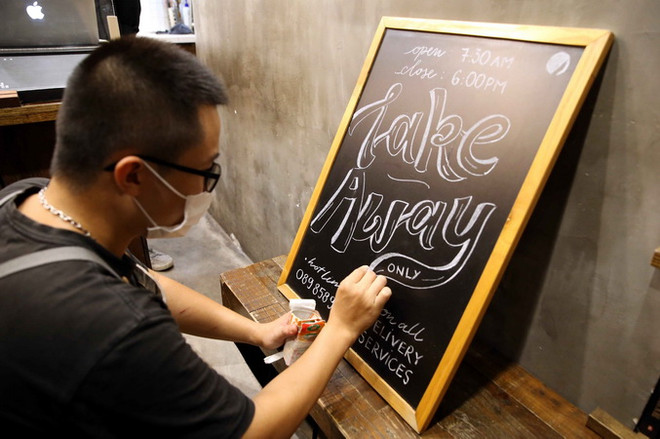 open 7.30AM
close: 6:00PM
Take
Away
ONLY
hotline
0898589
on all
DELIVERY
SERVICES